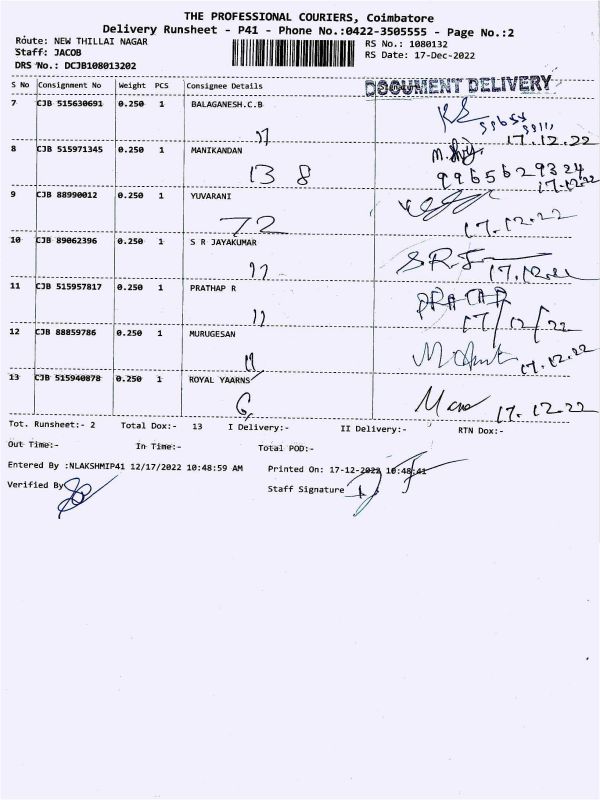 THE PROFESSIONAL COURIERS, Coimbatore
Delivery Runsheet - P41 - Phone No.:0422-3505555 - Page No.:2
Route: NEW THILLAI NAGAR RS No.: 1080132
Staff: JACOB RS Date: 17-Dec-2022
DRS No.: DCJB108013202
S No Consignment No Weight PCS Consignee Details DOCUMENT DELIVERY
7 CJB 515630691 0.250 1 BALAGANESH.C.B
17.12.22
8 CJB 515971345 0.250 1 MANIKANDAN
13 8 9965629324
17.12.22
9 CJB 88990012 0.250 1 YUVARANI
72 17.12.22
10 CJB 89062396 0.250 1 S R JAYAKUMAR
11 CJB 515957817 0.250 1 PRATHAP R
17/12/22
12 CJB 88859786 0.250 1 MURUGESAN
17.12.22
13 CJB 515940878 0.250 1 ROYAL YAARNS
17.12.22
Tot. Runsheet:- 2 Total Dox:- 13 I Delivery:- II Delivery:- RTN Dox:-
Out Time:- In Time:- Total POD:-
Entered By :NLAKSHMIP41 12/17/2022 10:48:59 AM Printed On: 17-12-2022 10:48:41
Verified By Staff Signature